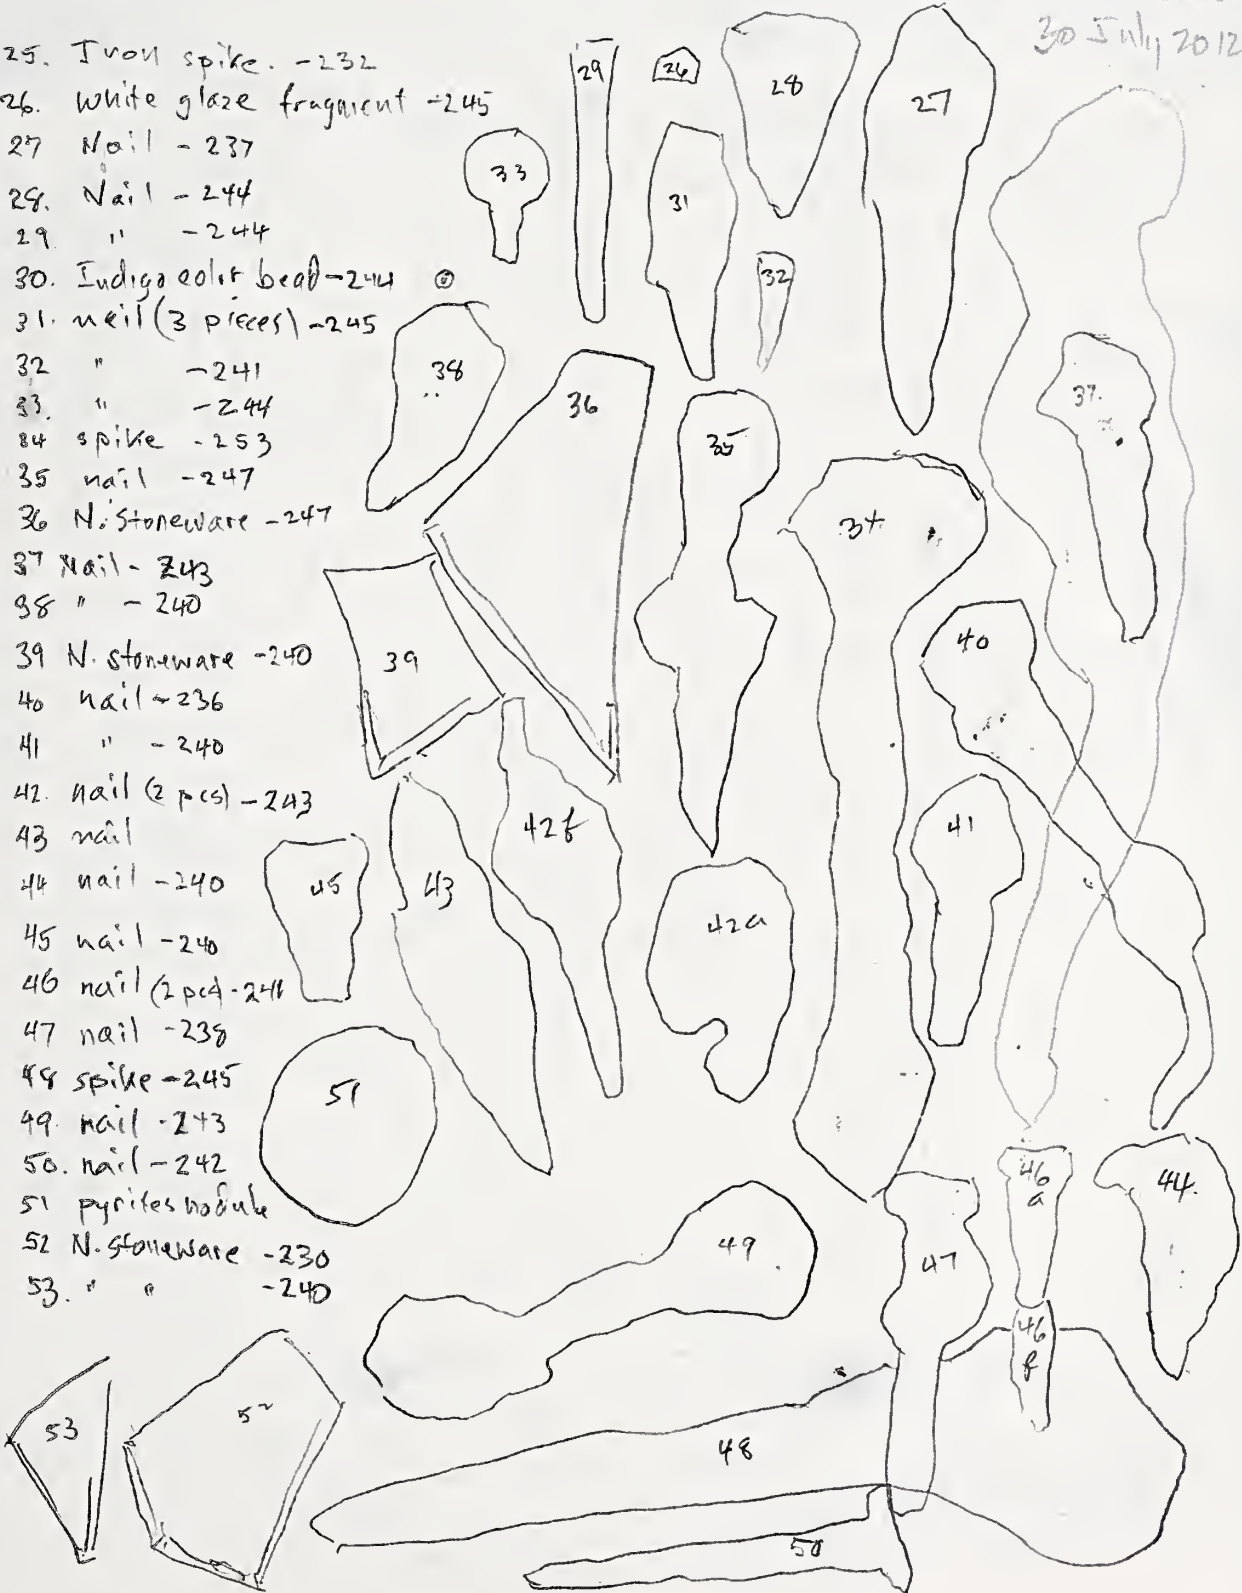 30 July 2012
25. Iron spike. -232
26. white glaze fragment -245
27 Nail - 237
28. Nail - 244
29 " - 244
30. Indigo color bead - 244
31. nail (3 pieces) - 245
32 " - 241
33. " - 244
34 spike - 253
35 nail - 247
36 N. Stoneware - 247
37 Nail - 243
38 " - 240
39 N. stoneware - 240
40 nail - 236
41 " - 240
42. nail (2 pcs) - 243
43 nail
44 nail - 240
45 nail - 240
46 nail (2 pcs) - 241
47 nail - 238
48 spike - 245
49. nail - 243
50. nail - 242
51 pyrites nodule
52 N. stoneware - 230
53. " " - 240
29
26
28
27
33
31
32
38
36
35
37.
34
39
40
42b
41
45
43
42a
51
46
a
44.
49
47
46
b
53
52
48
50